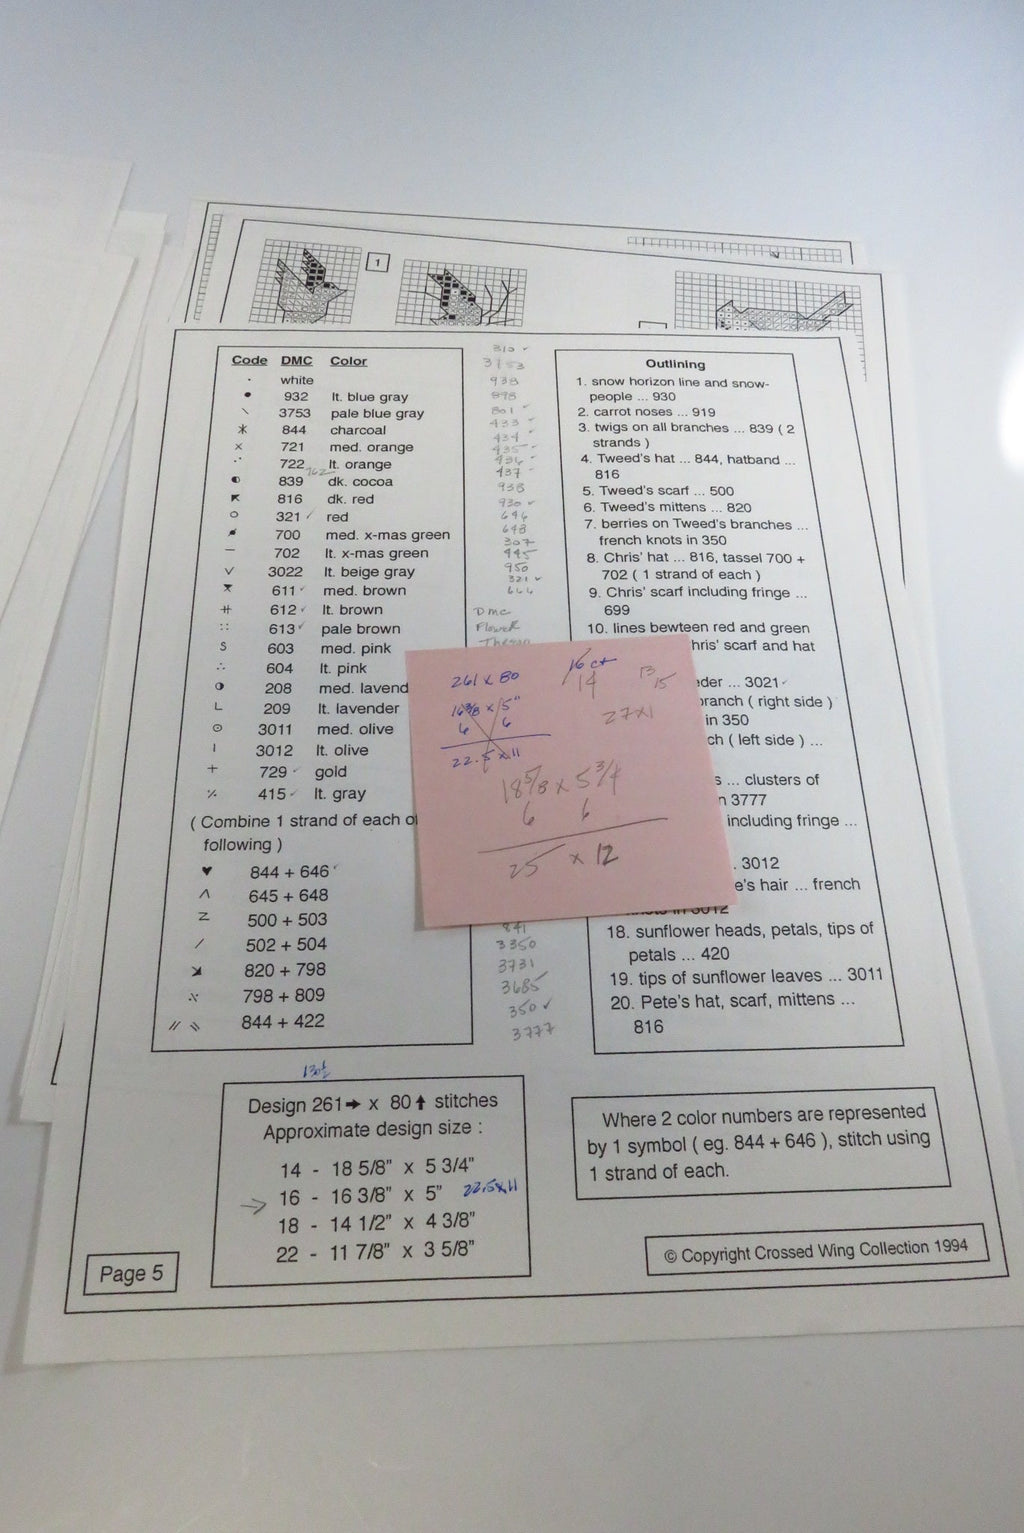 1
Code DMC Color
· white
932 lt. blue gray
3753 pale blue gray
844 charcoal
x 721 med. orange
722 lt. orange
762
839 dk. cocoa
816 dk. red
321 ✓ red
700 med. x-mas green
– 702 lt. x-mas green
3022 lt. beige gray
611 ✓ med. brown
612 ✓ lt. brown
:: 613 ✓ pale brown
S 603 med. pink
∴ 604 lt. pink
208 med. lavend
209 lt. lavender
3011 med. olive
3012 lt. olive
+ 729 ✓ gold
415 ✓ lt. gray
( Combine 1 strand of each of
following )
♥ 844 + 646 ✓
645 + 648
500 + 503
/ 502 + 504
820 + 798
798 + 809
844 + 422
310 ✓
3753
938
898
801 ✓
433 ✓
434
435
436 ✓
437 ✓
938
930 ✓
646
648
307
445
950
321 ✓
666
DMC
Flower
Thread
841
3350
3731
3685
350 ✓
3777
261 x 80
16 3/8 x 5"
6 6
22.5 x 11
16 ct
14
13
15
27 x 1
18 5/8 x 5 3/4
6 6
25 x 12
Outlining
1. snow horizon line and snow-
people ... 930
2. carrot noses ... 919
3. twigs on all branches ... 839 ( 2
strands )
4. Tweed's hat ... 844, hatband ...
816
5. Tweed's scarf ... 500
6. Tweed's mittens ... 820
7. berries on Tweed's branches ...
french knots in 350
8. Chris' hat ... 816, tassel 700 +
702 ( 1 strand of each )
9. Chris' scarf including fringe ...
699
10. lines bewteen red and green
hris' scarf and hat
der ... 3021 ✓
ranch ( right side )
in 350
ch ( left side ) ...
s ... clusters of
n 3777
including fringe ...
. 3012
e's hair ... french
knots in 3012
18. sunflower heads, petals, tips of
petals ... 420
19. tips of sunflower leaves ... 3011
20. Pete's hat, scarf, mittens ...
816
130½
Design 261 → x 80 ↑ stitches
Approximate design size :
14 - 18 5/8" x 5 3/4"
→ 16 - 16 3/8" x 5" 22.5 x 11
18 - 14 1/2" x 4 3/8"
22 - 11 7/8" x 3 5/8"
Where 2 color numbers are represented
by 1 symbol ( eg. 844 + 646 ), stitch using
1 strand of each.
Page 5
© Copyright Crossed Wing Collection 1994